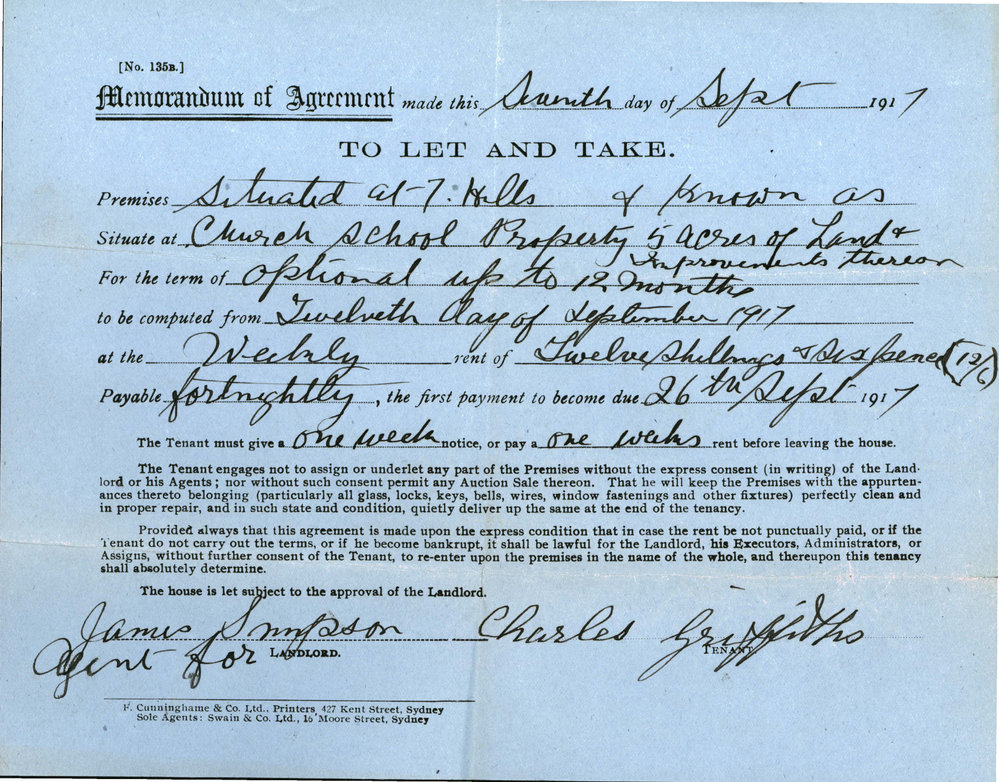 [No. 135B.]
Memorandum of Agreement made this Seventh day of Sept 1917
TO LET AND TAKE.
Premises Situated at 7. Hills & Known as
Situate at Church School Property 5 acres of Land &
Improvements thereon
For the term of optional up to 12 Months
to be computed from Twelveth day of September 1917
at the Weekly rent of Twelve Shillings & Six pence (12/6)
Payable fortnightly, the first payment to become due 26th Sept 1917
The Tenant must give a one week notice, or pay a one weeks rent before leaving the house.
The Tenant engages not to assign or underlet any part of the Premises without the express consent (in writing) of the Land-
lord or his Agents; nor without such consent permit any Auction Sale thereon. That he will keep the Premises with the appurten-
ances thereto belonging (particularly all glass, locks, keys, bells, wires, window fastenings and other fixtures) perfectly clean and
in proper repair, and in such state and condition, quietly deliver up the same at the end of the tenancy.
Provided always that this agreement is made upon the express condition that in case the rent be not punctually paid, or if the
Tenant do not carry out the terms, or if he become bankrupt, it shall be lawful for the Landlord, his Executors, Administrators, or
Assigns, without further consent of the Tenant, to re-enter upon the premises in the name of the whole, and thereupon this tenancy
shall absolutely determine.
The house is let subject to the approval of the Landlord.
James Simpson Charles Griffiths
agent for LANDLORD. TENANT
F. Cunninghame & Co. Ltd., Printers, 427 Kent Street, Sydney
Sole Agents: Swain & Co. Ltd., 16 Moore Street, Sydney